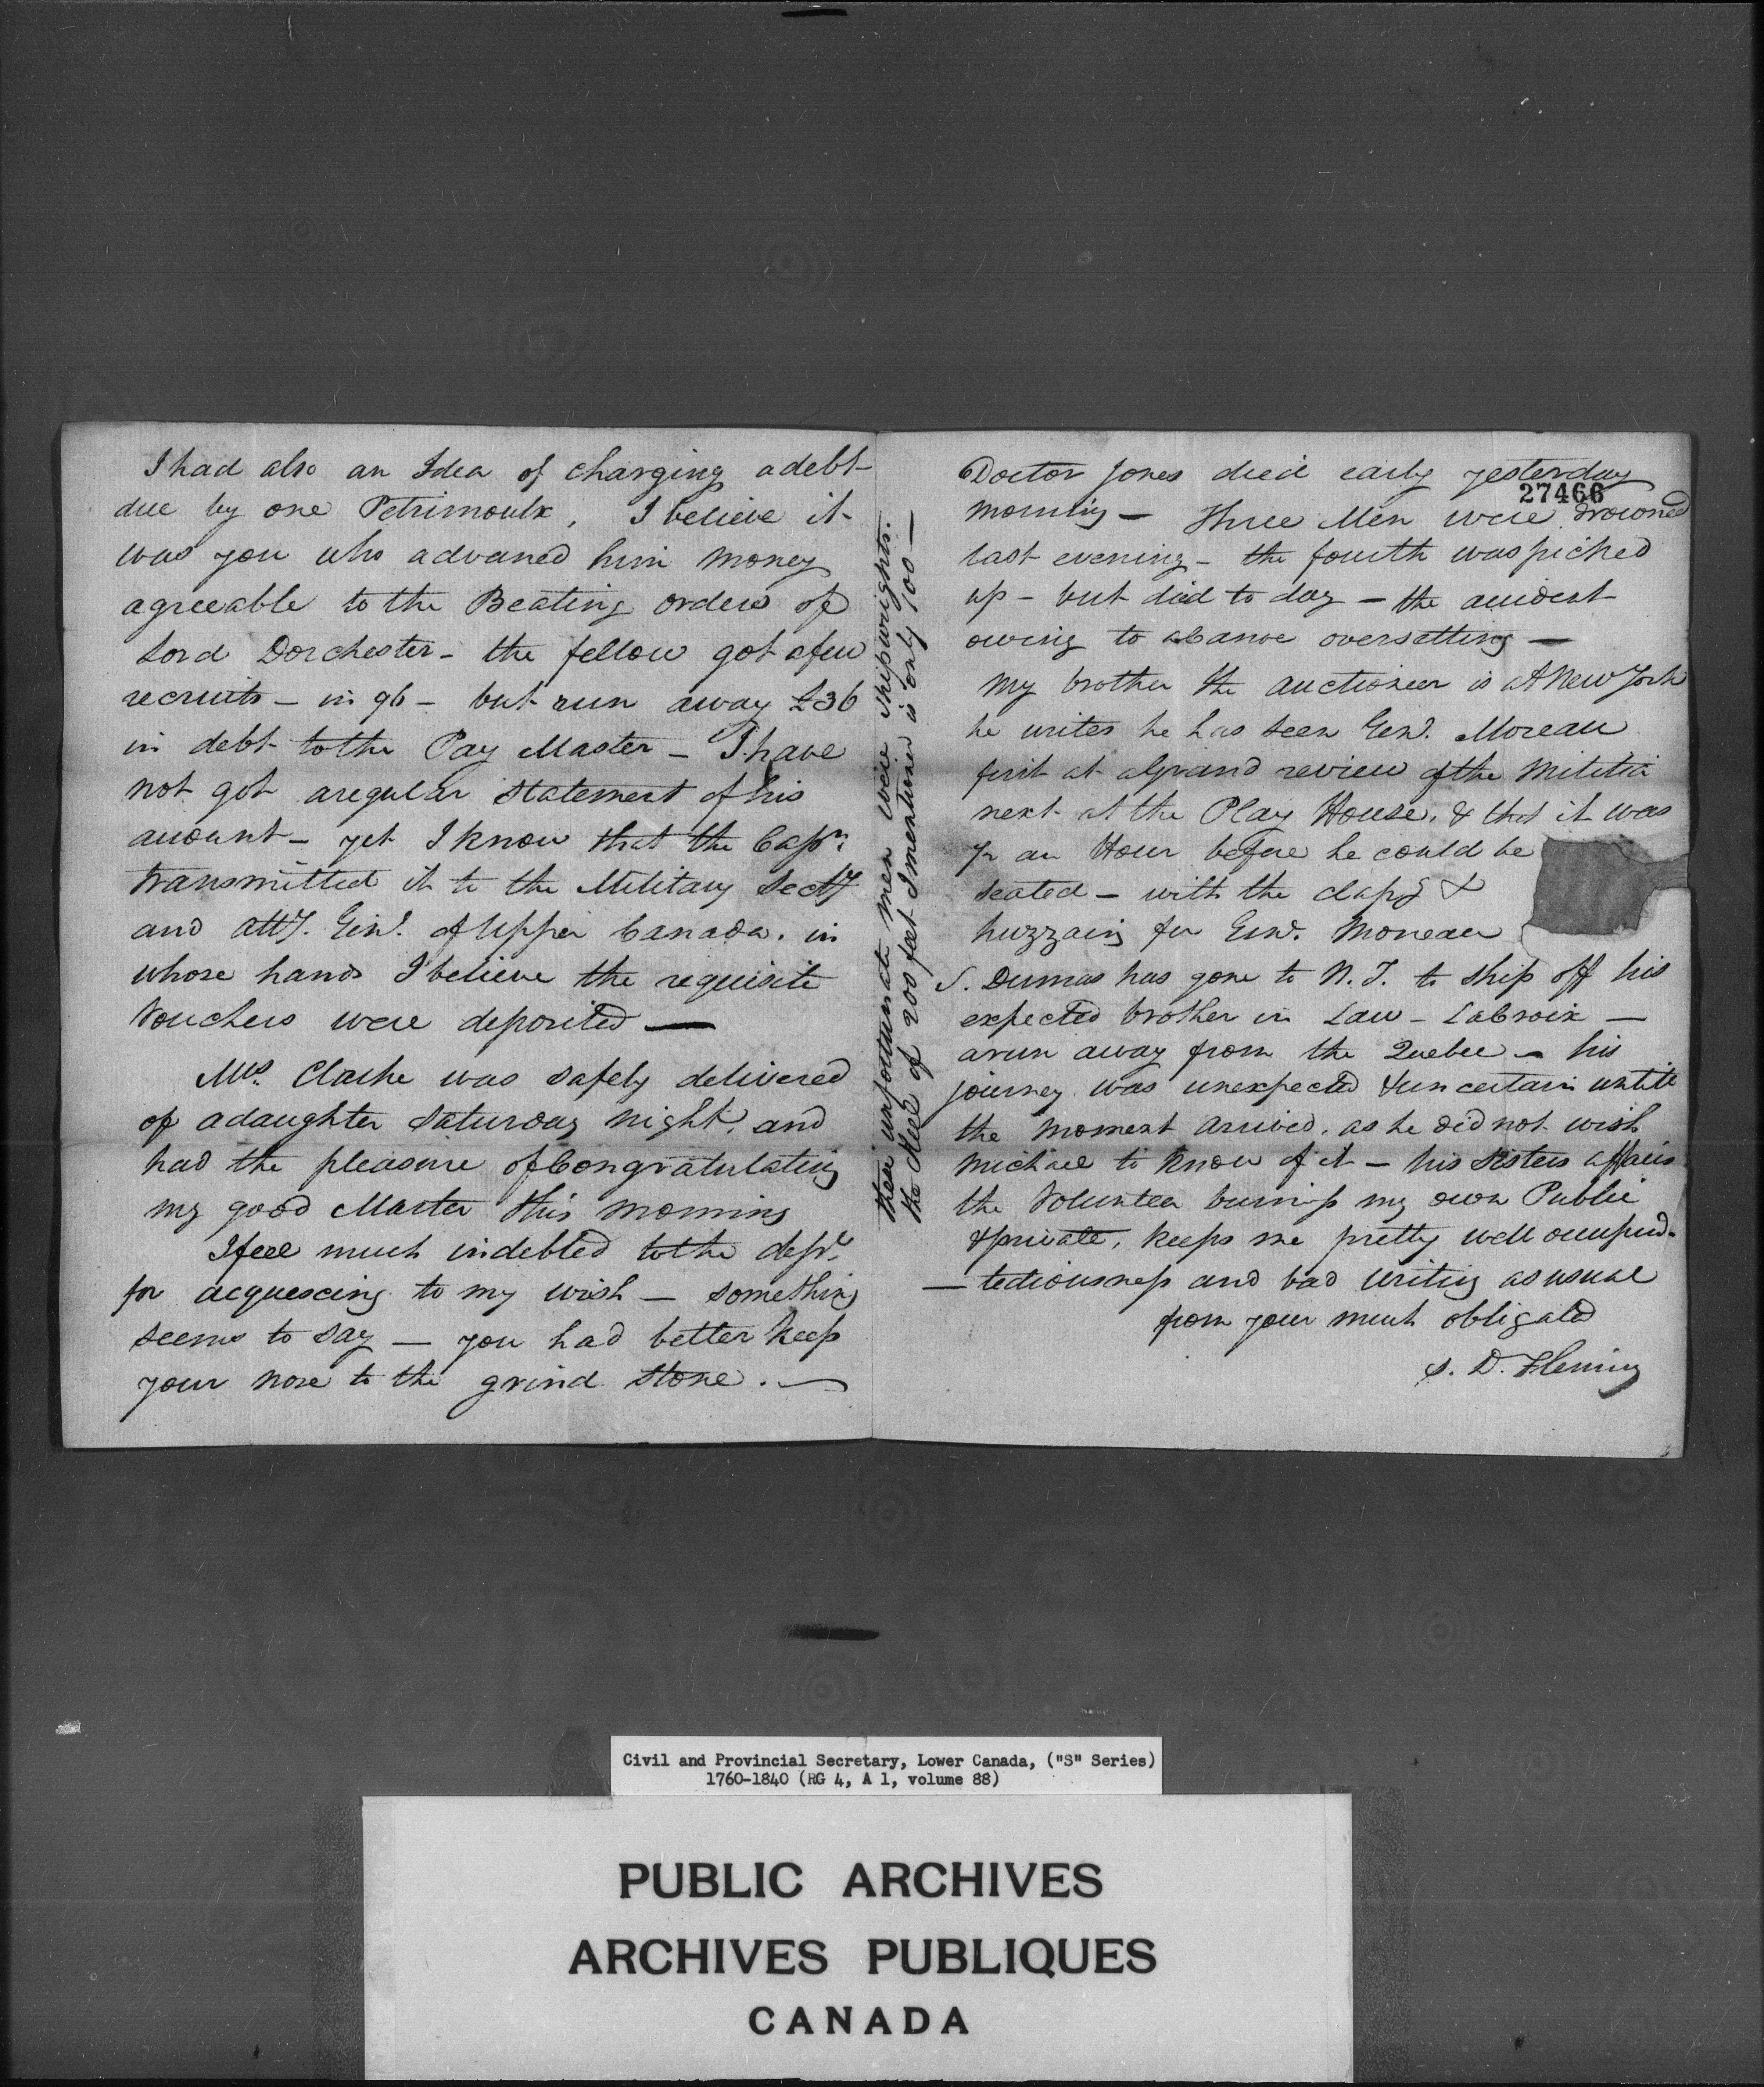 I had also an Idea of charging a debt
due by one Petrimoulx, I believe it
was you who advanced him money
agreeable to the Beating orders of
Lord Dorchester - the fellow got a few
recruits - in 96 - but run away £36
in debt to the Pay Master - I have
not got a regular statement of his
account - yet I know that the Capn.
transmitted it to the Military Secty
and Atty. Genl. of Upper Canada. in
whose hands I believe the requisite
Vouchers were deposited —
Mrs. Clarke was safely delivered
of a daughter Saturday night, and
had the pleasure of Congratulating
my good Master this morning
I feel much indebted to the
for acquescing to my wish — something
seems to say — you had better keep
your nose to the grind stone. —
these unfortunate men were shipwrights.
the of 200 feet I mentioned is only 100 —
Doctor Jones died early yesterday
27466
morning — Three Men were drowned
last evening - the fourth was picked
up - but died to day — the accident
owing to a Canoe oversetting —
my brother the auctioneer is at New York
he writes he has seen Genl. Moreau
first at a Grand review of the Militia
next at the Play House, & that it was
½ an Hour before he could be
seated — with the clapg &
huzzaing for Genl. Moreau
S. Dumas has gone to N.Y. to ship off his
expected brother in Law - LaCroix —
a run away from the Quebec - his
journey was unexpected & uncertain untill
the moment arrived, as he did not wish
Michael to know of it — his sisters affairs
the Volunteer business my own Public
& private, keeps me pretty well occupied.
— tediousness and bad writing as usual
from your much obligated
S. D. Fleming
Civil and Provincial Secretary, Lower Canada, ("S" Series)
1760-1840 (RG 4, A 1, volume 88)
PUBLIC ARCHIVES
ARCHIVES PUBLIQUES
CANADA